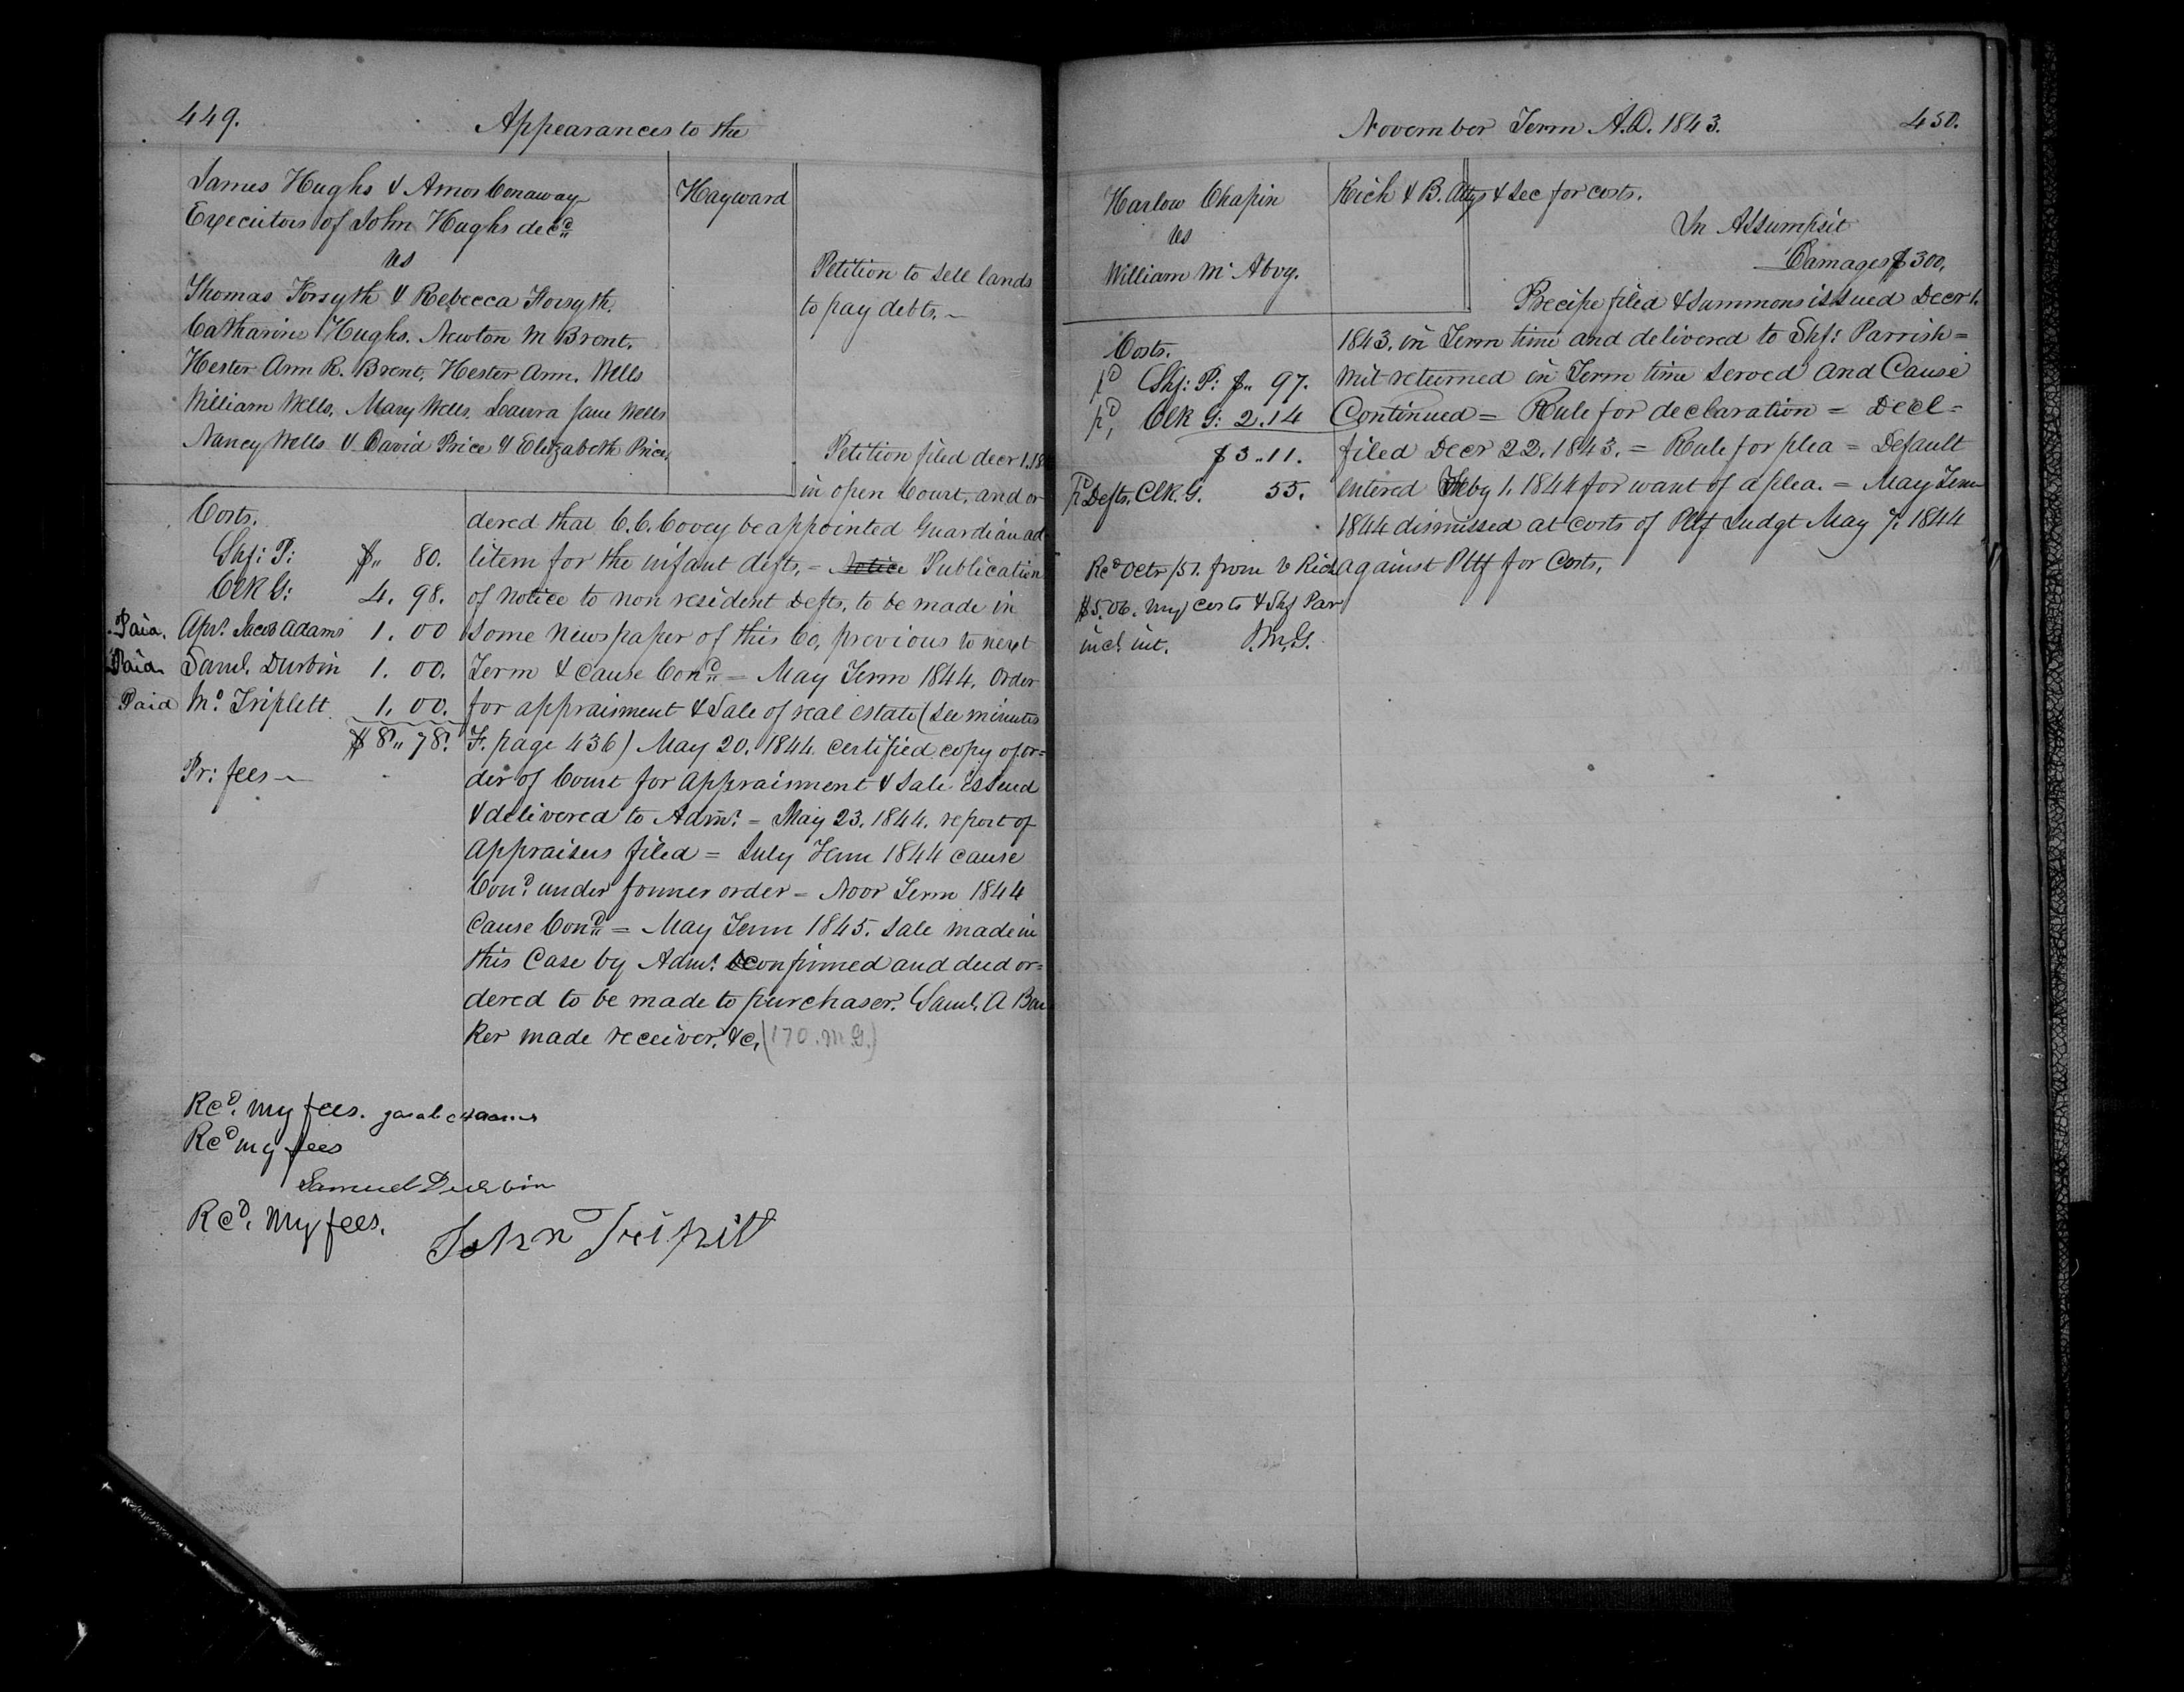 449.
Appearances to the
James Hughs & Amos Conaway
Executors of John Hughs decd
vs
Thomas Forsyth & Rebecca Forsyth.
Catharine Hughs. Newton M Brent.
Hester Ann R. Brent, Hester Ann. Wells
William Wells, Mary Wells, Laura Jane Wells
Nancy Wells & David Price & Elizabeth Price.
Hayward
Petition to sell lands
to pay debts.
Petition filed decr 1, 18
in open Court, and or
dered that C. C. Covey be appointed Guardian ad
litem for the infant defts, = Notice Publication
of notice to non resident Defts, to be made in
some newspaper of this Co, previous to next
Term & cause Cond = May Term 1844. Order
for appraisment & Sale of real estate (see minutes
F. page 436) May 20. 1844. certified copy of or=
der of Court for appraisment & sale issued
& delivered to Admr. = May 23. 1844. report of
appraisers filed = July Term 1844 cause
Cond. under former order = Novr Term 1844
Cause Cond = May Term 1845. Sale made in
this Case by Admr. confirmed and deed or=
dered to be made to purchaser. Saml. A Bar
ker made receiver. &c, (170. M G.)
Costs.
Shf: P: $ „ 80.
Clk G: 4. 98.
Paid. Apr. Jacob Adams 1. 00
Paid Saml. Durbin 1. 00.
Paid Mo. Triplett 1. 00.
$ 8 „ 78.
Pr: fees
Recd. my fees. Jacob Adams
Recd my fees
Samuel Durbin
Recd. My fees.
John Triplitt
November Term A.D. 1843.
450.
Harlow Chapin
vs
William Mc Avoy.
Rich & B. Attys & Sec for costs.
In Assumpsit
Damages $300,
Precipe filed & Summons issued Decr 1.
1843. in Term time and delivered to Shf: Parrish =
Writ returned in Term time served and Cause
Continued = Rule for declaration = Decl=
filed Decr 22. 1843. = Rule for plea = Default
entered Feby 1. 1844 for want of a plea. = May Term
1844 dismissed at costs of Pltf Judgt May 7: 1844
against Pltf for Costs.
Costs.
pd Shf: P: $ „ 97.
pd, Clk G: 2. 14
$ 3 „ 11.
Pd Defts. Clk. G. 55.
Recd Octr /51. from C Rich
$5.06. my costs & Shf Par
incl. int. I. M. G.